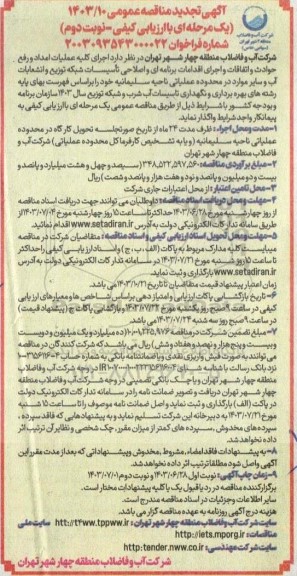 آگهی تجدید مناقصه عمومی ۱۴۰۳/۱۰
(یک مرحله ای با ارزیابی کیفی - نوبت دوم)
شماره فراخوان ۲۰۰۳۰۹۳۵۴۳۰۰۰۰۲۲
شرکت آب و فاضلاب منطقه چهار شهر تهران در نظر دارد اجرای کلیه عملیات امداد و رفع
حوادث و اتفاقات و اجرای اقدامات برنامه ای و اصلاحی تأسیسات شبکه توزیع و انشعابات
آب و سایر موارد در محدوده عملیاتی ناحیه سلیمانیه خود را براساس فهرست بهای پایه
رشته های بهره برداری و نگهداری تأسیسات آب شرب و شبکه توزیع سال ۱۴۰۳ سازمان برنامه
و بودجه کشور با شرایط ذیل از طریق مناقصه عمومی یک مرحله ای با ارزیابی کیفی به
پیمانکار واجد شرایط واگذار نماید.
۱- مدت و محل اجرا: ظرف مدت ۲۴ ماه از تاریخ صورتجلسه تحویل کار گاه در محدوده
عملیاتی ناحیه سلیمانیه (و یا به تشخیص کارفرما کل محدوده عملیاتی) شرکت آب و
فاضلاب منطقه چهار شهر تهران
۲- مبلغ برآوردی مناقصه: ۳۴۸,۵۲۲,۵۹۷,۵۶۰ (سیصد و چهل و هشت میلیارد و پانصد و
بیست و دو میلیون و پانصد و نود و هفت هزار و پانصد و شصت) ریال
۳- محل تأمین اعتبار: از محل اعتبارات جاری شرکت
۴- مهلت و محل دریافت اسناد مناقصه: داوطلبان می توانند جهت دریافت اسناد مناقصه
از روز چهارشنبه مورخ ۱۴۰۳/۰۶/۲۸ حداکثر تا ساعت ۱۵ روز چهارشنبه مورخ ۱۴۰۳/۰۷/۰۴ از
طریق سامانه تدارکات الکترونیکی دولت به آدرس www.setadiran.ir اقدام نمایند.
۵- مهلت و محل تحویل اسناد ارزیابی کیفی و اسناد مناقصه: متقاضیان شرکت در مناقصه
میبایست کلیه مدارک مربوط به پاکات (الف، ب، ج) و اسناد ارزیابی کیفی را حداکثر
تا ساعت ۱۵ روز شنبه مورخ ۱۴۰۳/۰۷/۲۱ در سامانه تدارکات الکترونیکی دولت به آدرس
www.setadiran.ir بارگذاری و ثبت نماید.
زمان اعتبار پیشنهاد قیمت متقاضیان تا تاریخ ۱۴۰۳/۱۰/۲۱ می باشد.
۶- تاریخ بازگشایی پاکات ارزیابی و امتیاز دهی براساس شاخص ها و معیارهای ارزیابی
کیفی در ساعت ۹ صبح روز یکشنبه مورخ ۱۴۰۳/۷/۲۲ و بازگشایی پاکات ج (پیشنهاد قیمت)
در ساعت ۹ صبح روز سه شنبه ۱۴۰۳/۷/۲۴ می باشد.
۷- مبلغ تضمین شرکت در مناقصه ۱۰,۰۰۱,۲۲۵,۹۷۶ (ده میلیارد و یک میلیون و دویست
و بیست و پنج هزار و نهصد و هفتاد و شش) ریال می باشد که شرکت کنندگان در مناقصه
می توانند به صورت فیش واریزی نقدی و یا ضمانتنامه بانکی به شماره حساب
نزد بانک رسالت با شناسه شبای در وجه شرکت آب و فاضلاب
منطقه چهار شهر تهران و یا چک بانکی تضمینی در وجه شرکت آب و فاضلاب منطقه
چهار شهر تهران دریافت و تصویر ضمانت نامه را در سامانه تدارکات الکترونیک دولت
در پاکت (الف) بارگذاری و ثبت نماید و اصل ضمانت نامه موصوف را تا ساعت ۱۵ شنبه
مورخ ۱۴۰۳/۷/۲۱ به دبیرخانه این شرکت تسلیم نماید و به پیشنهادهایی که فاقد سپرده،
سپرده های مخدوش، سپرده های کمتر از میزان مقرر، چک شخصی و نظایر آن ترتیب اثر
داده نخواهد شد.
۸- به پیشنهادات فاقد امضاء، مشروط، مخدوش و پیشنهاداتی که بعد از مدت مقرر این
آگهی واصل شود مطلقا ترتیب اثر داده نخواهد شد.
۹- زمان چاپ آگهی: نوبت اول ۱۴۰۳/۰۶/۲۸ و نوبت دوم ۱۴۰۳/۰۷/۰۱
برگزارکننده مناقصه در رد یا قبول یک یا کلیه پیشنهادات مختار است.
سایر اطلاعات و جزئیات در اسناد مناقصه مندرج است.
هزینه درج آگهی روزنامه به عهده مناقصه گزار می باشد.
سایت شرکت آب و فاضلاب منطقه چهار شهر تهران: htt:t4ww.tppww.ir سایت ملی
مناقصات: http://iets.mporg.ir
سایت شرکت مهندسی: http:tender.nww.co.ir
شرکت آب و فاضلاب منطقه چهار شهر تهران